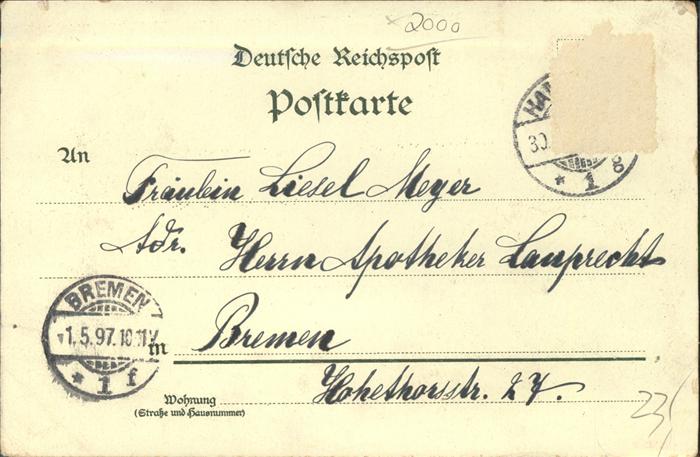 2000
Deutsche Reichspost
Postkarte
An
Fräulein Liesel Meyer
Adr. Herrn Apotheker Lamprecht
in Bremen
Hohethorsstr. 27.
Wohnung
(Straße und Hausnummer)
BREMEN
1.5.97. 10-11V
* 1 f
HA
30.
* 1 g
23